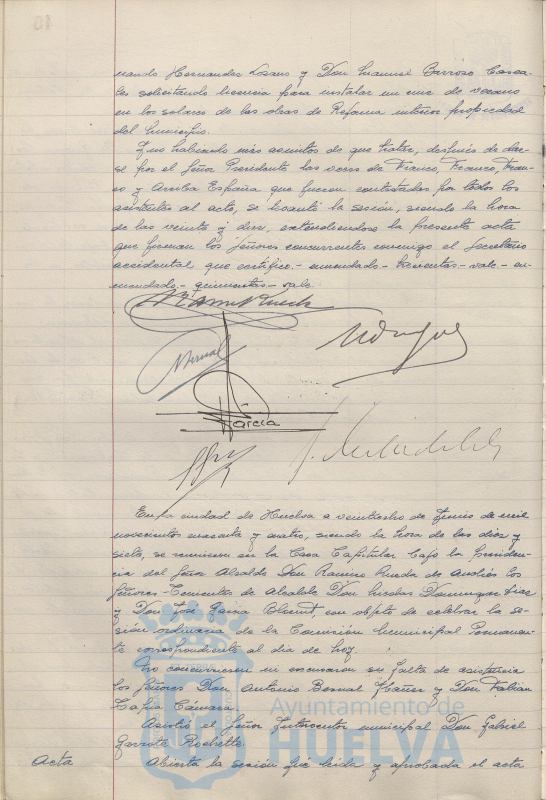 nando Hernandez Lozano y Don Manuel Barroso Casea-
les solicitando licencia para instalar un cine de verano
en los solares de las obras de Reforma interior propiedad
del Municipio.
Y no habiendo más asuntos de que tratar, después de dar-
se por el Señor Presidente las voces de Franco, Franco, Fran-
co y Arriba España que fueron contestadas por todos los
asistentes al acto, se levantó la sesión, siendo la hora
de las veinte y diez, extendiéndose la presente acta
que firman los Señores concurrentes conmigo el Secretario
accidental que certifico.- enmendado - trescientas - vale - en-
mendado.- quinientas - vale
Bernal
García
En la ciudad de Huelva a veintiocho de Junio de mil
novecientos cuarenta y cuatro, siendo la hora de las diez y
siete, se reunieron en la Casa Capitular bajo la Presiden-
cia del Señor Alcalde Don Ramiro Rueda de Andrés los
Señores Tenientes de Alcalde Don Nicolas Dominguez Diaz
y Don José Garcia con objeto de celebrar la se-
sión ordinaria de la Comisión Municipal Permanen-
te correspondiente al dia de hoy.
No concurrieron ni excusaron su falta de asistencia
los Señores Don Antonio Bernal y Don Fabian
Tapia Cámara.
Asistió el Señor Interventor municipal Don Gabriel
Garrote
Acta Abierta la sesión fue leida y aprobada el acta
Ayuntamiento de
HUELVA